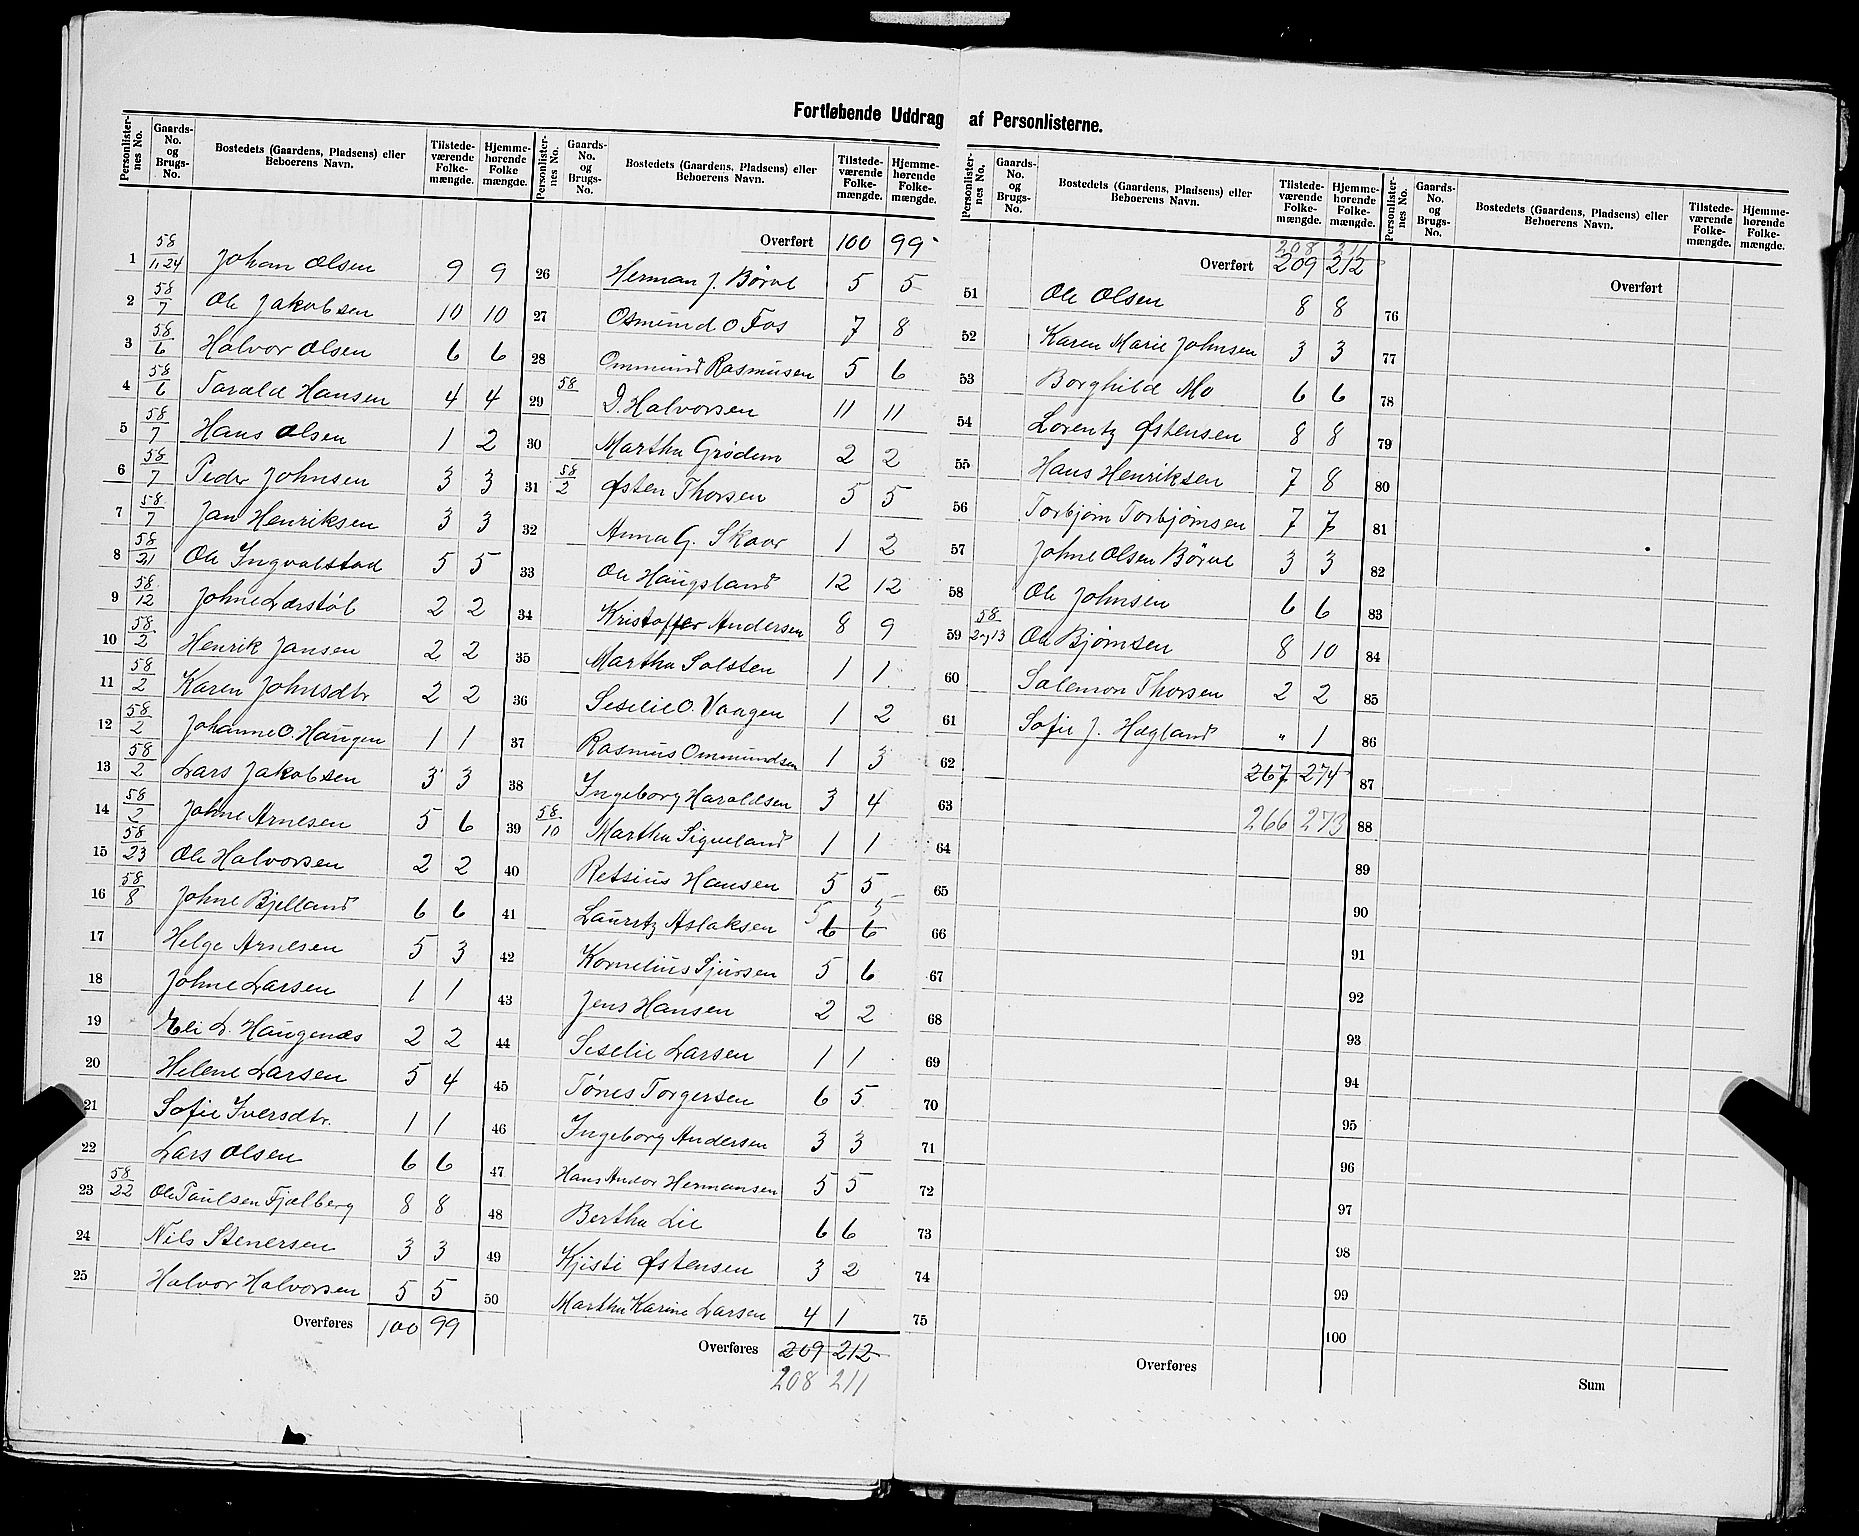 Fortløbende Uddrag af Personlisterne.
Personlister- nes No. | Gaards- No. og Brugs- No. | Bostedets (Gaardens, Pladsens) eller Beboerens Navn. | Tilstede- værende Folke- mængde. | Hjemme- hørende Folke mængde.
1 58/1,24 Johan Olsen 9 9
2 58/7 Ole Jakobsen 10 10
3 58/6 Halvor Olsen 6 6
4 58/6 Tarald Hansen 4 4
5 58/7 Hans Olsen 1 2
6 58/7 Peder Johnsen 3 3
7 58/7 Jan Henriksen 3 3
8 58/21 Ole Ingvalstad 5 5
9 58/12 Johne Lærstøl 2 2
10 58/2 Henrik Jansen 2 2
11 58/2 Karen Johnsdtr 2 2
12 58/2 Johanne O. Haugen 1 1
13 58/2 Lars Jakobsen 3 3
14 58/2 Johne Arnesen 5 6
15 58/23 Ole Halvorsen 2 2
16 58/8 Johne Bjelland 6 6
17 Helge Arnesen 5 3
18 Johne Larsen 1 1
19 Eli L. Haugenæs 2 2
20 Helene Larsen 5 4
21 Sofie Iversdtr. 1 1
22 Lars Olsen 6 6
23 58/22 Ole Paulsen Fjælberg 8 8
24 Nils Stenersen 3 3
25 Halvor Halvorsen 5 5
Overføres 100 99
Personlister- nes No. | Gaards- No. og Brugs- No. | Bostedets (Gaardens, Pladsens) eller Beboerens Navn. | Tilstede- værende Folke- mængde. | Hjemme- hørende Folke- mængde.
Overført 100 99
26 Herman J. Børve 5 5
27 Osmund O Fos 7 8
28 Ommund Rasmusen 5 6
29 58 D. Halvorsen 11 11
30 Martha Grødem 2 2
31 58/2 Østen Thorsen 5 5
32 Anna G. Skaar 1 2
33 Ole Haugsland 12 12
34 Kristoffer Andersen 8 9
35 Martha Solsten 1 1
36 Seselie O. Vaagen 1 2
37 Rasmus Ommundsen 1 3
38 Ingeborg Haraldsen 3 4
39 58/10 Martha Sigveland 1 1
40 Retsius Hansen 5 5
41 Lauritz Aslaksen 5 5 6 6
42 Kornelius Sjursen 5 6
43 Jens Hansen 2 2
44 Seselie Larsen 1 1
45 Tønes Torgersen 6 5
46 Ingeborg Andersen 3 3
47 Hans Andor Hermansen 5 5
48 Bertha Lie 6 6
49 Kjisti Østensen 3 2
50 Martha Karine Larsen 4 1
Overføres 209 212
208 211
Personlister- nes No. | Gaards- No. og Brugs- No. | Bostedets (Gaardens, Pladsens) eller Beboerens Navn. | Tilstede- værende Folke- mængde. | Hjemme- hørende Folke- mængde.
208 211
Overført 209 212
51 Ole Olsen 8 8
52 Karen Marie Johnsen 3 3
53 Borghild Mo 6 6
54 Lorentz Østensen 8 8
55 Hans Henriksen 7 8
56 Torbjørn Torbjørnsen 7 7
57 Johne Olsen Børve 3 3
58 Ole Johnsen 6 6
59 58/2og13 Ole Bjørnsen 8 10
60 Salemon Thorsen 2 2
61 Sofie J. Hægland " 1
62 267 274
63 266 273
64
65
66
67
68
69
70
71
72
73
74
75
Overføres
Personlister- nes No. | Gaards- No. og Brugs- No. | Bostedets (Gaardens, Pladsens) eller Beboerens Navn. | Tilstede- værende Folke- mængde. | Hjemme- hørende Folke- mængde.
Overført
76
77
78
79
80
81
82
83
84
85
86
87
88
89
90
91
92
93
94
95
96
97
98
99
100
Sum